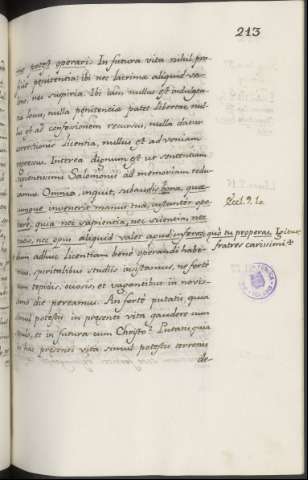 213
potest operari. In futura vita nihil pro
fiit penitentia: ibi nec lacrimæ aliquid va
nec suspiria. Ibi iam nullus est indulgen
tiæ locus, nulla penitentia patet libertas, nul
lus est ad confessionem recursus, nulla datur
correctionis licentia, nullus est ad veniam
regressus. Interea dignum est ut sententiam
Salomonis ad memoriam redu
camus. Omnia, inquit, subaudis bona, quæ
cunque invenerit manus tua, instanter ope
rare, quia nec sapientia, nec scientia, nec
ratio, nec opus aliquid valet apud inferos, quò tu properas. Igitur
fratres carissimi
Eccl. 9. 10
dum adhuc licentiam bene operandi habe
mus, spiritalibus studiis insistamus, ne fortè
cum tepidis, otiosis et vagantibus in novis
simo die pereamus. An fortè putatis quia
simul potestis in presenti vita gaudere cum
et in futura cum Christo? Putatis quia
in hac presenti vita simul potestis terrenis
de-